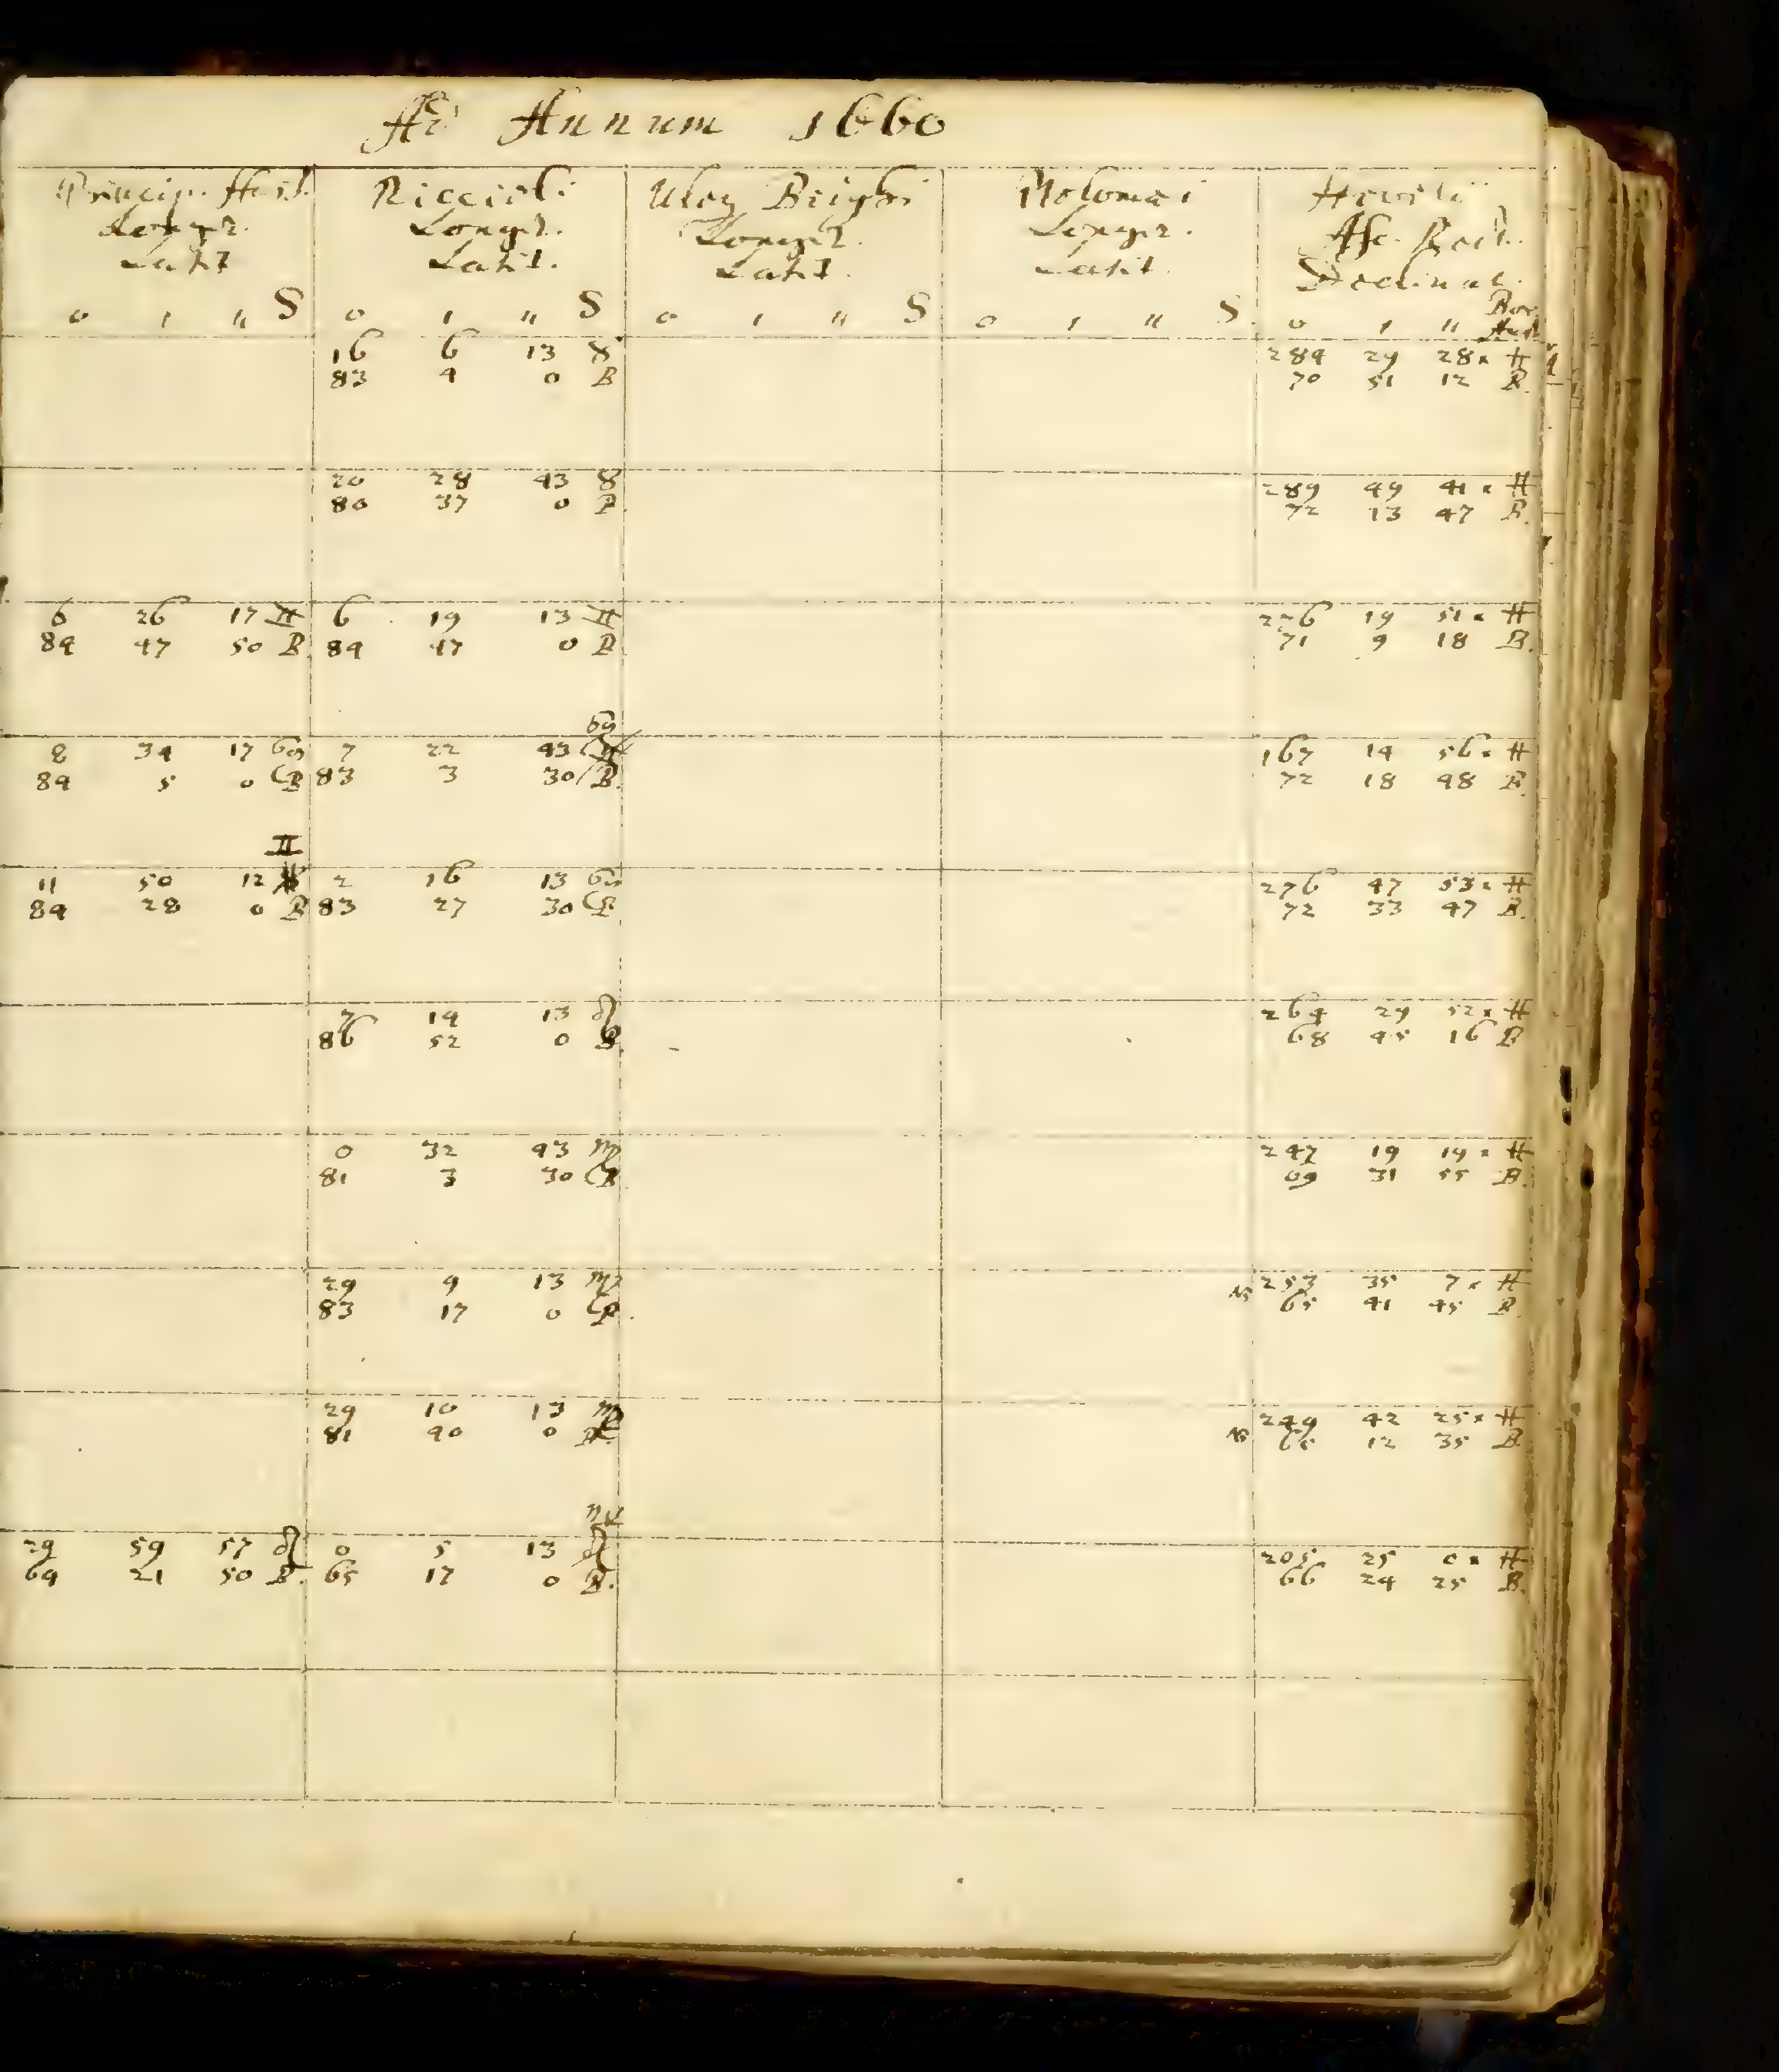 Ad Annum 1660
Princip. Hass. Riccioli Uleg Beighi Ptolomæi Hevelii
Longit. Longit. Longit. Longit. Asc. Rect.
Latit Latit. Latit. Latit. Declinat.
Bor
° ′ ″ S ° ′ ″ S ° ′ ″ S ° ′ ″ S ° ′ ″ Aust
16 6 13 ♉ 284 29 28 H
83 4 0 B 70 51 12 B.
20 28 43 ♉ 289 49 41 H
80 37 0 B. 72 13 47 B.
6 26 17 ♊ 6 19 13 ♊ 276 19 51 H
84 47 50 B. 84 47 0 B. 71 9 18 B.
♋
8 34 17 ♋ 7 22 43 167 14 56 H
84 5 0 B 83 3 30 B. 72 18 48 B.
♊
11 50 12 2 16 13 ♋ 276 47 53 H
84 28 0 B 83 27 30 B 72 33 47 B.
7 14 13 ♌ 264 29 52 H
86 52 0 B. 68 45 16 B
0 32 43 ♍ 247 19 19 H
81 3 30 B 69 31 55 B.
29 9 13 ♍ NS 253 35 7 H
83 17 0 B. 65 41 45 B.
29 10 13 ♍ NS 249 42 25 H
81 40 0 B. 12 35 B
♍
29 59 57 ♌ 0 5 13 205 25 0 H
64 21 50 B. 65 17 0 B. 66 24 25 B.